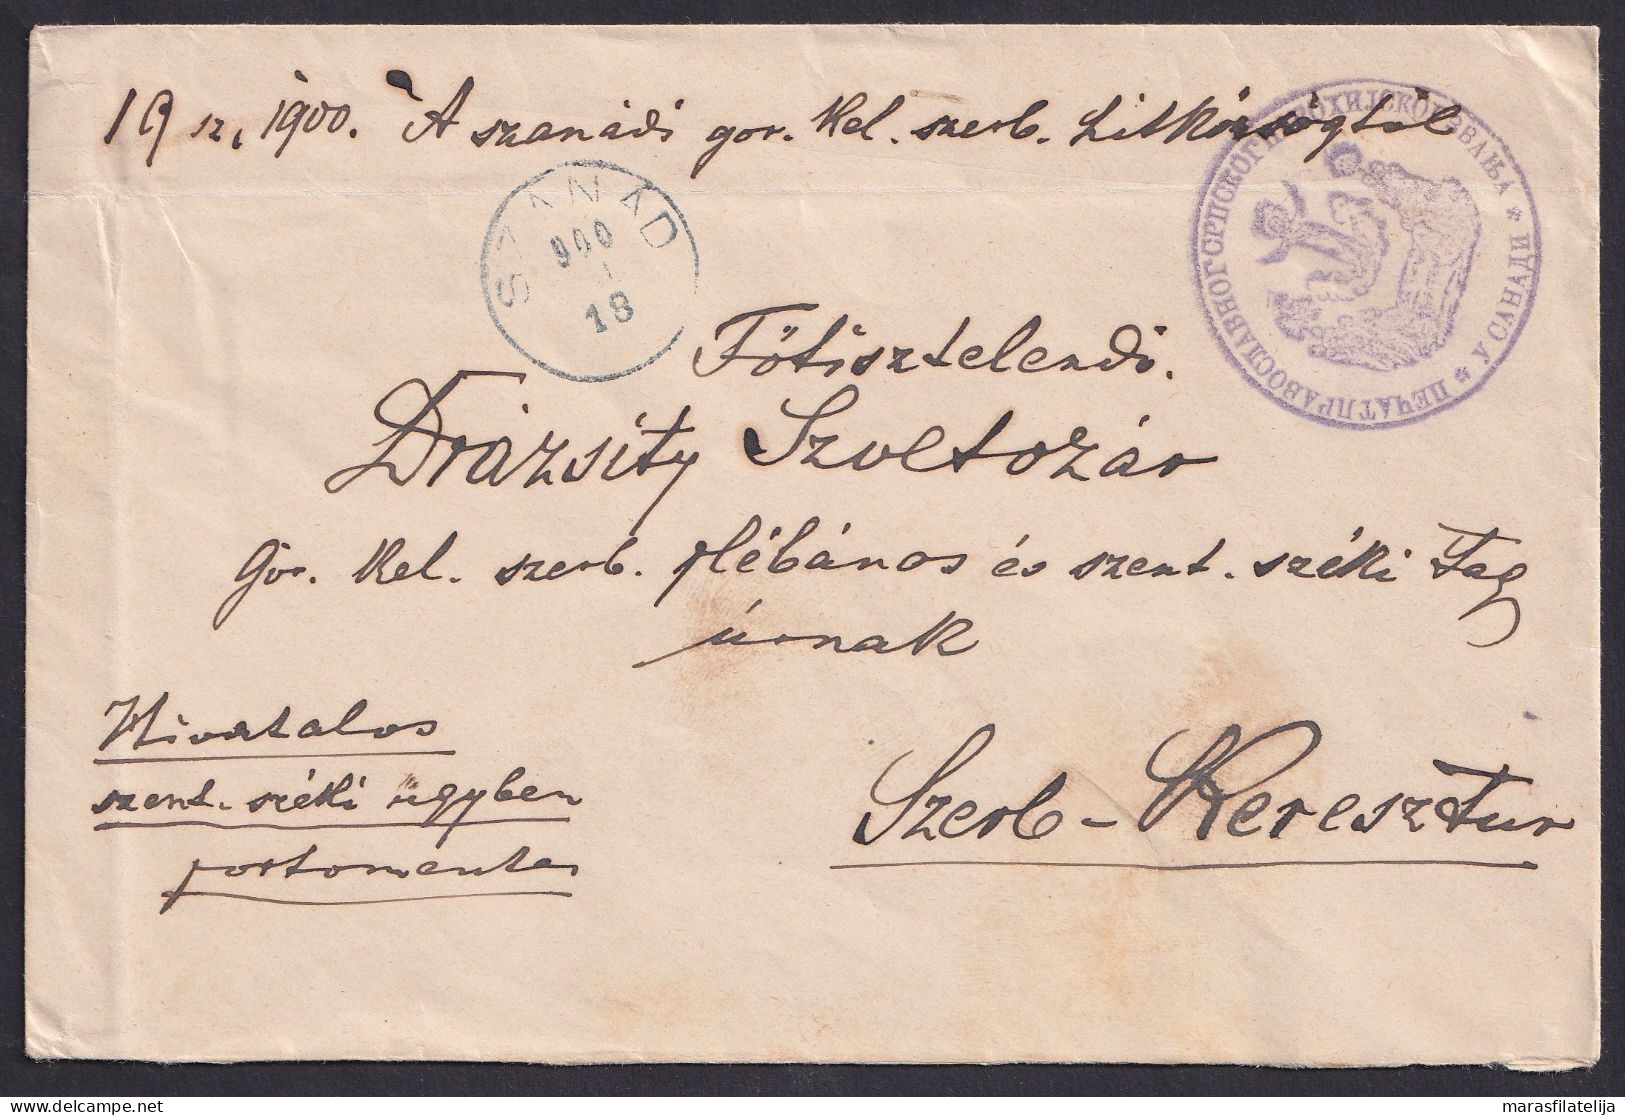 19 sz, 1900. A szanádi gor. kel. szerb. hitközségtöl
SZANÁD
900
18
ПЕЧАТ ПРАВОСЛАВНОГ СРПСКОГ ПАРОХИЈСКОГ ЗВАЊА * У САНАДИ *
Főtisztelendi.
Drázsity Szvetozár
Gor. kel. szerb. plébános és szent. széki Tag
úrnak
Hivatalos
szent. széki ügyben
portomentes
Szerb-Keresztur
marasfilatelija